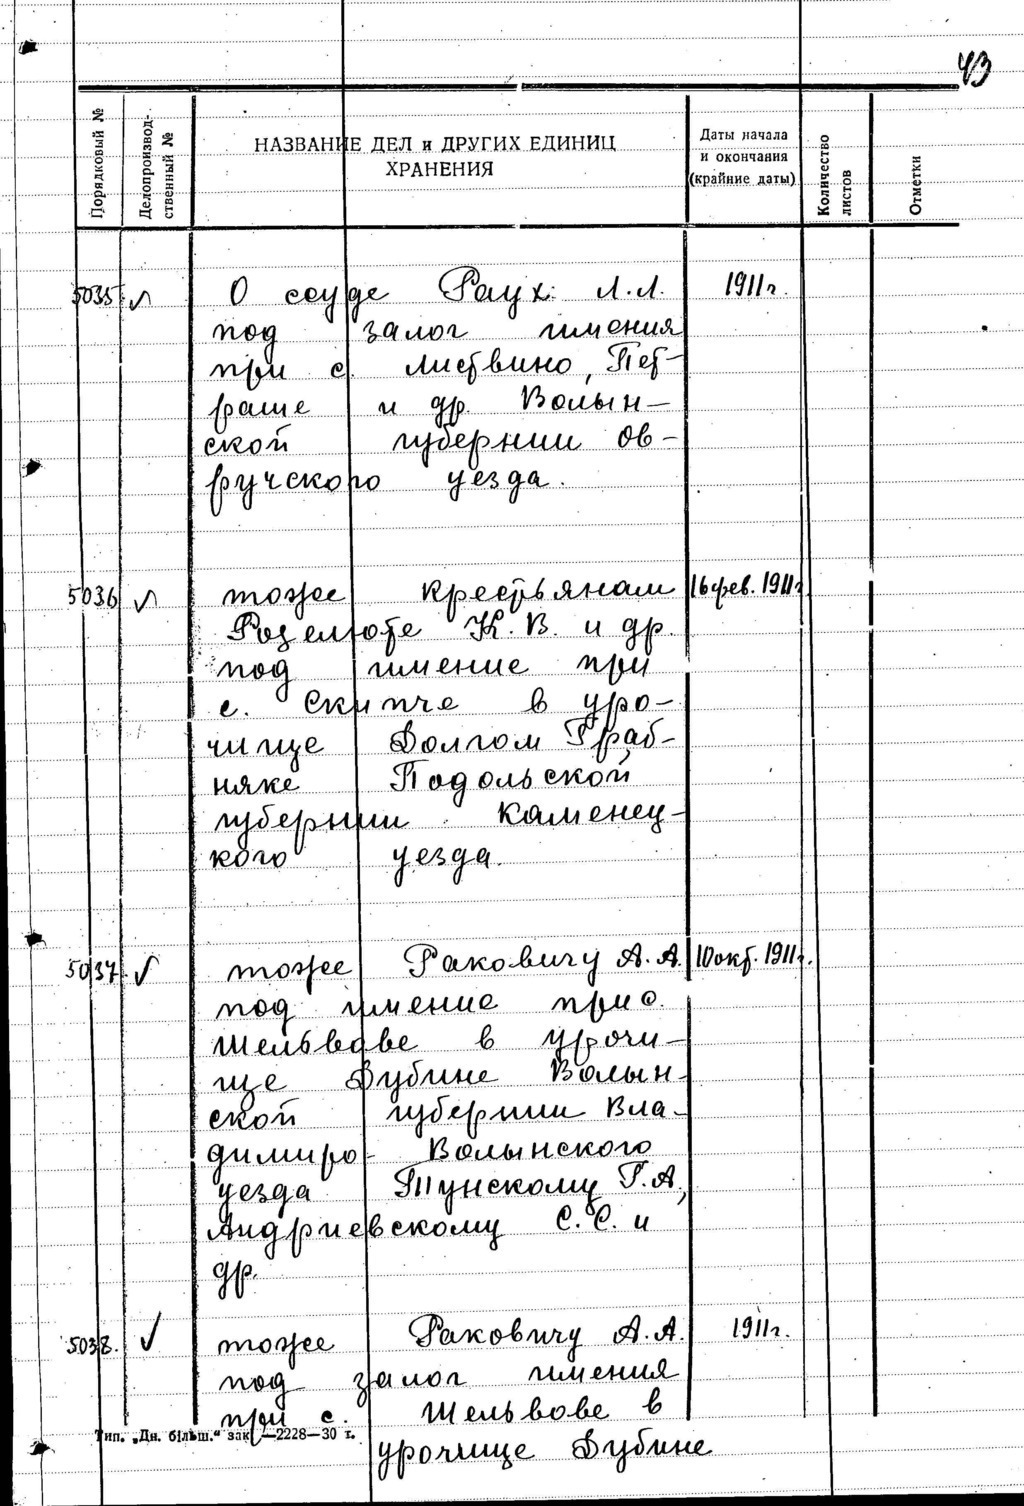 43
Порядковый №
Делопроизвод-
ственный №
НАЗВАНИЕ ДЕЛ и ДРУГИХ ЕДИНИЦ
ХРАНЕНИЯ
Даты начала
и окончания
(крайние даты)
Количество
листов
Отметки
5035 О ссуде Раух Л.Л. 1911г.
под залог имения
при с. Листвино, Пет-
раше и др. Волын-
ской губернии Ов-
ручского уезда.
5036 тоже крестьянам 16 фев. 1911г
К. В. и др.
под имение при
с. Скипче в уро-
чище Долгом Граб-
няке Подольской
губернии Каменец-
кого уезда.
5037 тоже Раковичу А.А. 10 окт. 1911г.
под имение при с.
Шельвове в урочи-
ще Дубине Волын-
ской губернии Вла-
димиро- Волынского
уезда Тунскому Г.А.,
Андриевскому С.С. и
др.
5038. тоже Раковичу А.А. 1911г.
под залог имения
при с. Шельвове в
урочище Дубине
Тип. „Дн. більш." зак.—2228—30 г.